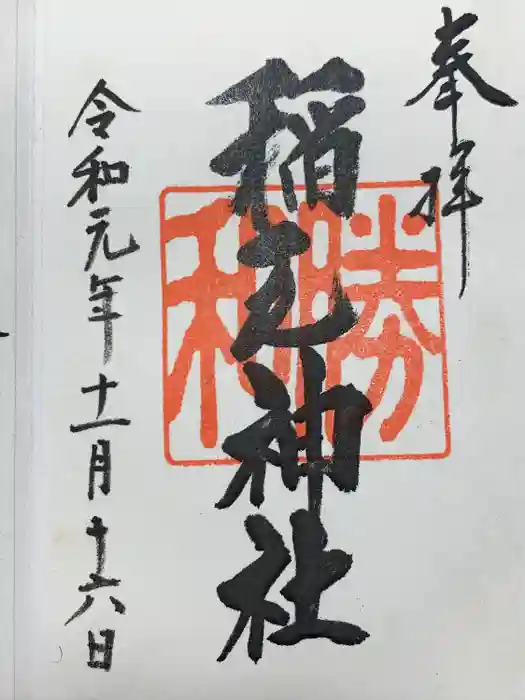 奉拝
勝利
稲毛神社
令和元年十一月十六日